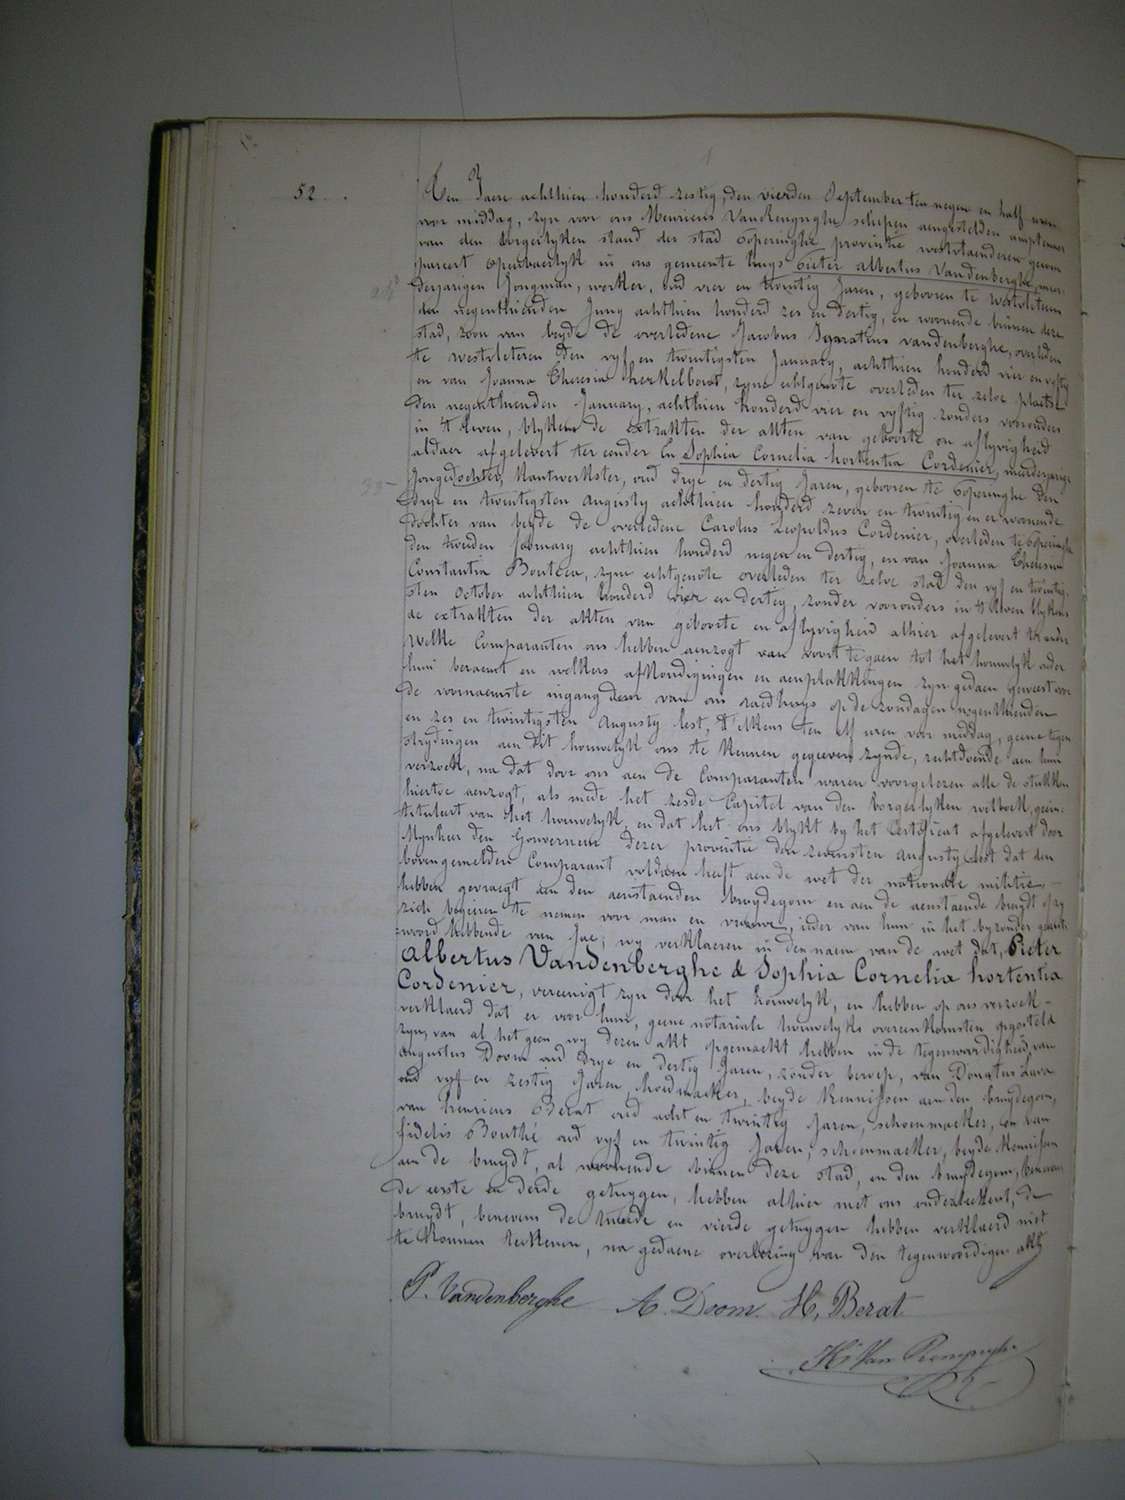 52.
Ten Jaere achthien honderd zestig, den vierden September ten negen en half uren
voor middag, zyn voor ons Henricus Van Rengryghe schepen aengestelden amptenaer
van den borgerlyken stand der stad Poperinghe provintie westvlaenderen gecom
pareert openbaerlyk in ons gemeente huys Pieter albertus Vandenberghe, meer
derjarigen Jongman, werker, oud vier en twintig Jaren, gebooren te Westvleteren
den negenthienden Juny achthien honderd zes en dertig, en woonende binnen deze
stad, zoon van beyde de overledene Jacobus Ignatius vandenberghe, overleden
te westvleteren den vyf en twintigsten January, achthien honderd vier en vyftig
en van Joanna Theresia herkelbout, zyne echtgenote overleden ter zelve plaetse
den negenthienden January, achthien honderd vier en vyftig zonders voorouders
in 't Leven, blykens de extrakten der akten van geboorte en aflyvigheid
aldaer afgelevert ter eender En Sophia Cornelia hortentia Cordenier, meerderjarige
Jongedochter, Kantwerkster, oud drye en dertig Jaren, gebooren te Poperinghe den
drye en twintigsten Augusty achthien honderd zeven en twintig en er woonende
dochter van beyde de overledene Carolus Leopoldus Cordenier, overleden te Poperinghe
den tweeden february achthien honderd negen en dertig, en van Joanna Theresia
Constantia Boutten, zyne echtgenote overleden ter zelve stad den vyf en twintig-
sten October achthien honderd vier en dertig, zonder voorouders in 't Leven blykens
de extrakten der akten van geboorte en aflyvigheid alhier afgelevert ter ander
Welke Comparanten ons hebben aenzogt van voort te gaen tot het houwelyk onder
hun beraemt en welkers afkondigingen en aenplakkingen zyn gedaen geweest voor
de voornaemste ingang deur van ons raedhuys op de zondagen negenthienden
en zes en twintigsten Augusty lest, t'elkens ten elf uren voor middag, geene tegen
strydingen aen dit houwelyk ons te kennen gegeeven zynde, rechtdoende aen hun
verzoek, na dat door ons aen de Comparanten waren voorgelezen alle de stukken
hiertoe aenzogt, als mede het zesde Capitel van den borgerlyken wetboek, gein-
tituleert van het houwelyk, en dat het ons blykt by het Certificat afgelevert door
Mynheer den Gouverneur dezer provintie den zevensten Augusty lest dat den
bovengemelden Comparant voldaen heeft aen de wet der nationale militie,
hebben gevraegt aen den aenstaenden bruydegom en aen de aenstaende bruydt of zy
zich begeiren te nemen voor man en vrouwe, ieder van hun in het byzonder geant-
woord hebbende van Jae; wy verklaeren in den naem van de wet dat, Pieter
Albertus Vandenberghe & Sophia Cornelia hortentia
Cordenier, vereenigt zyn door het houwelyk, en hebben op ons verzoek
verklaerd dat er voor hun, geene notariale houwelyks overeenkomsten opgesteld
zyn, van al het geen wy dezen akt opgemaekt hebben in de tegenwoordigheid, van
Augustus Doom oud drye en dertig Jaren, zonder beroep, van Donatus Lava
oud vyf en zestig Jaren, hoedmaeker, beyde Kennissen aen den bruydegom,
van henricus Berat oud acht en twintig Jaren, schoenmaeker, en van
fidelis Bouthé oud vyf en twintig Jaren, schoenmaeker, beyde Kennissen
aen de bruydt, al woonende binnen deze stad, en den bruydegom, benevens
de eerste en derde getuygen, hebben alhier met ons onderteekent, de
bruydt, benevens de tweede en vierde getuygen hebben verklaerd niet
te konnen teekenen, na gedaene overlezing van den tegenwoordigen akt
P. Vandenberghe A. Doom. H, Berat